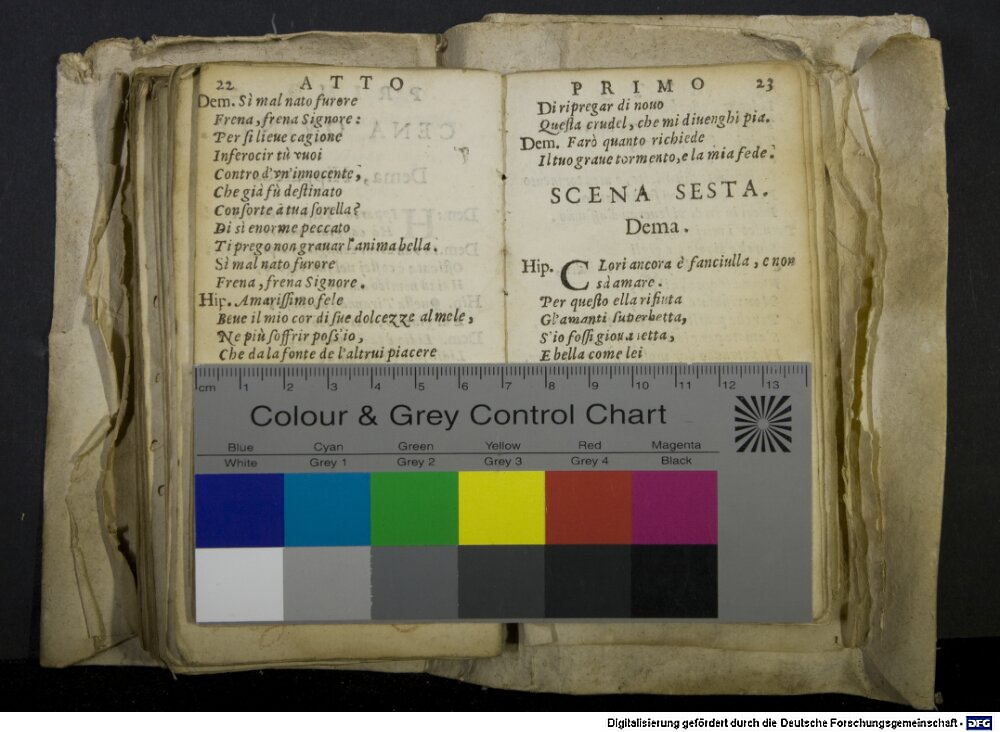 22 ATTO
Dem. Sì mal nato furore
Frena, frena Signore:
Per sì lieue cagione
Inferocir tù vuoi
Contro d'vn'innocente,
Che già fù destinato
Consorte à tua sorella?
Di sì enorme peccato
Ti prego non grauar l'anima bella.
Sì mal nato furore
Frena, frena Signore.
Hip. Amarissimo fele
Beue il mio cor di sue dolcezze al mele,
Ne più soffrir poss'io,
Che da la fonte de l'altrui piacere
PRIMO 23
Di ripregar di nouo
Questa crudel, che mi diuenghi pia.
Dem. Farò quanto richiede
Il tuo graue tormento, e la mia fede.
SCENA SESTA.
Dema.
Hip. CLori ancora è fanciulla, e non
sà amare.
Per questo ella rifiuta
Gl'amanti superbetta,
S'io fossi giouanetta,
E bella come lei
cm 1 2 3 4 5 6 7 8 9 10 11 12 13
Colour & Grey Control Chart
Blue Cyan Green Yellow Red Magenta
White Grey 1 Grey 2 Grey 3 Grey 4 Black
Digitalisierung gefördert durch die Deutsche Forschungsgemeinschaft - DFG